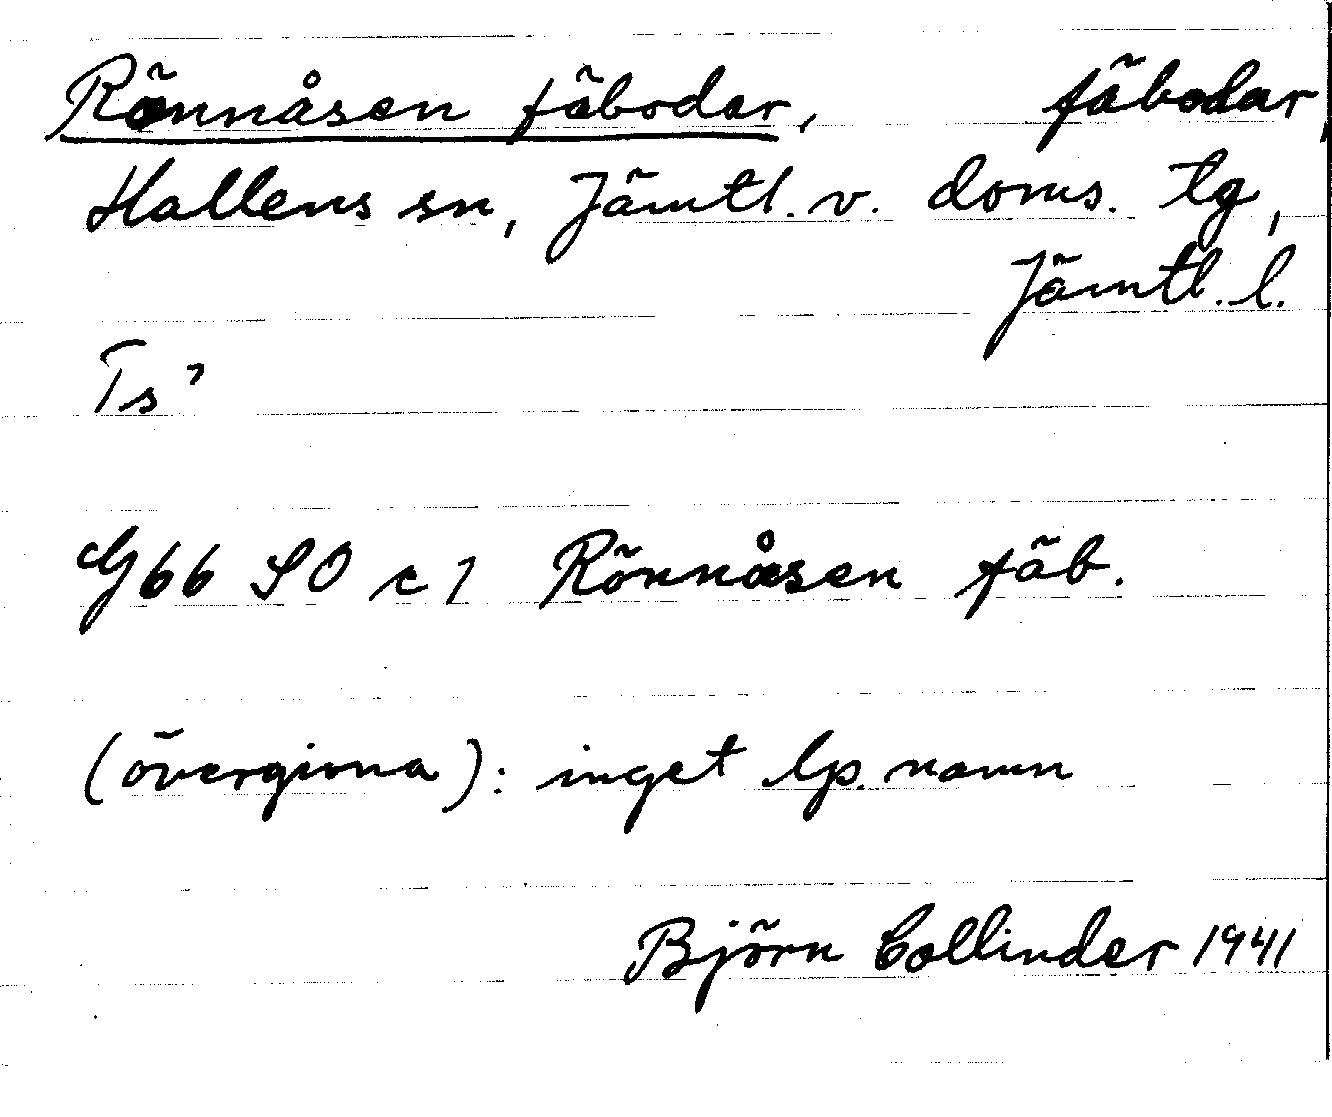 Rönnåsen fäbodar, fäbodar,
Hallens sn, Jämtl. v. doms. tg,
Jämtl. l.
Ts?
G66 SO c 1 Rönnåsen fäb.
(övergivna): inget lp. namn
Björn Collinder 1941